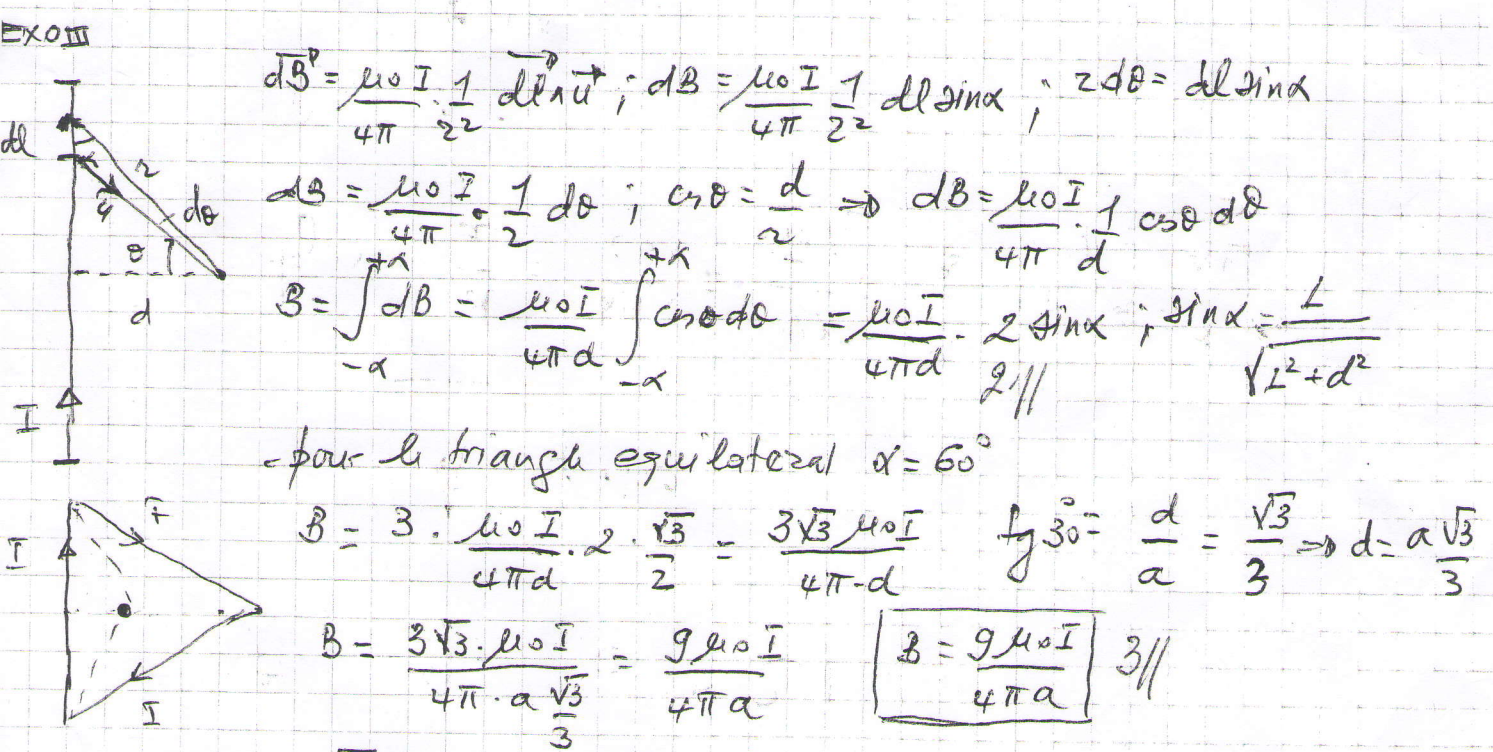 EXO III
dB⃗ = μ0 I / 4π · 1/r² dl⃗ ∧ u⃗ ; dB = μ0 I / 4π 1/r² dl sinα ; r dθ = dl sinα
dl
r
u
dθ
θ
d
I
dB = μ0 I / 4π · 1/r dθ ; cosθ = d/r ⇒ dB = μ0 I / 4π · 1/d cosθ dθ
B = ∫_{-α}^{+α} dB = μ0 I / 4πd ∫_{-α}^{+α} cosθ dθ = μ0 I / 4πd · 2 sinα ; sinα = L / √(L² + d²)
2//
- pour le triangle equilateral α = 60°
I
I
I
B = 3 · μ0 I / 4πd · 2 · √3/2 = 3√3 μ0 I / 4π·d tg 30° = d/a = √3/3 ⇒ d = a √3/3
B = 3√3 · μ0 I / 4π · a √3/3 = 9 μ0 I / 4πa B = 9 μ0 I / 4πa 3//